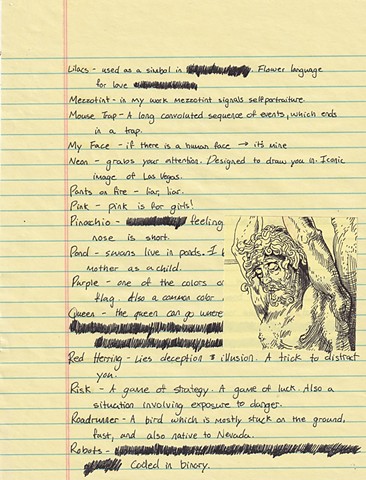 Lilacs - used as a simbol in . Flower language
for love
Mezzotint - in my work mezzotint signals selfportraiture.
Mouse Trap - A long convoluted sequence of events, which ends
in a trap.
My Face - if there is a human face → its mine
Neon - grabs your attention. Designed to draw you in. Iconic
image of Las Vegas.
Pants on fire - liar, liar.
Pink - pink is for girls!
Pinochio - feeling
nose is short.
Pond - swans live in ponds. I
mother as a child.
Purple - one of the colors o
flag. Also a common color
Queen - the queen can go where
Red Herring - Lies deception & illusion. A trick to distract
you.
Risk - A game of strategy. A game of luck. Also a
situation involving exposure to danger.
Roadrunner - A bird which is mostly stuck on the ground,
fast, and also native to Nevada.
Robots -
Coded in binary.